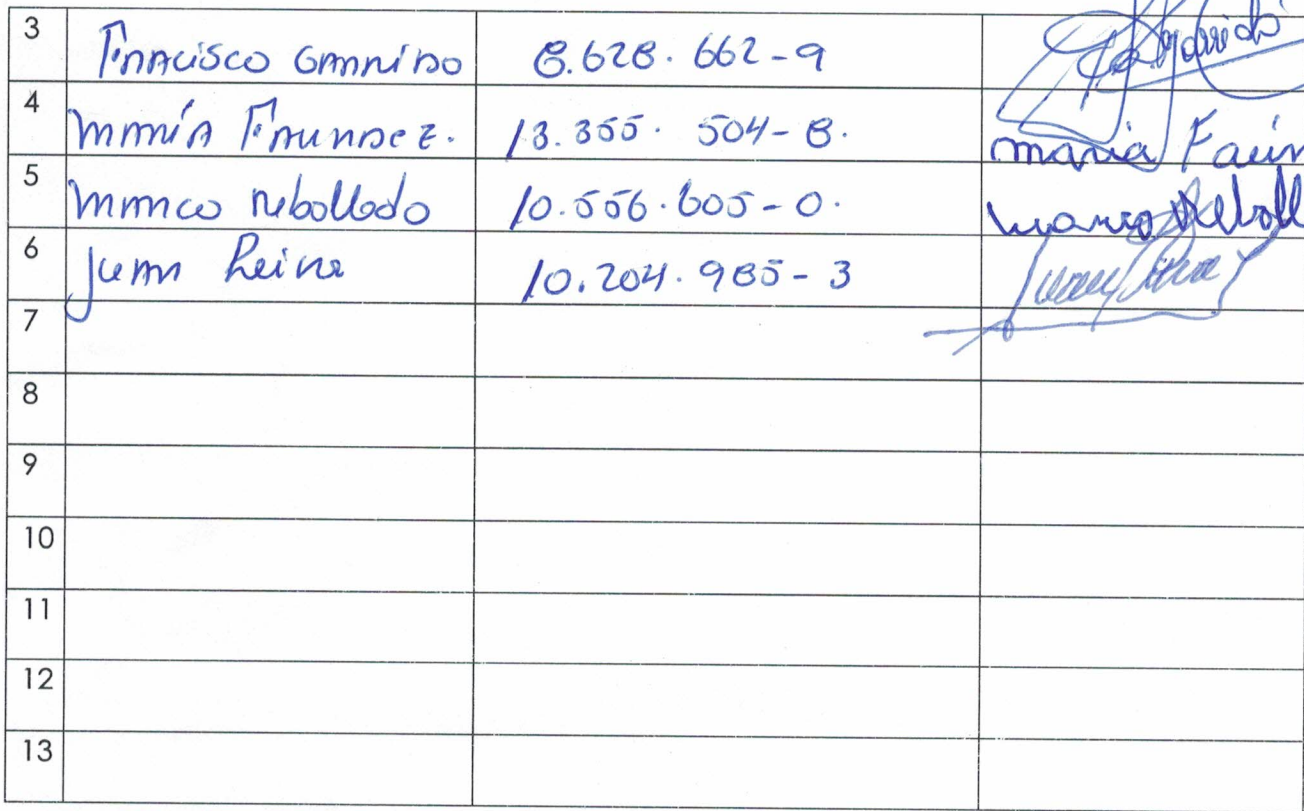 3 Francisco Garrido 8.628.662-9 Garrido
4 María Faundez. 13.355.504-8. maria Faún
5 Marco Rebolledo 10.556.605-0. Marco Reboll
6 Juan Reina 10.204.985-3
7
8
9
10
11
12
13